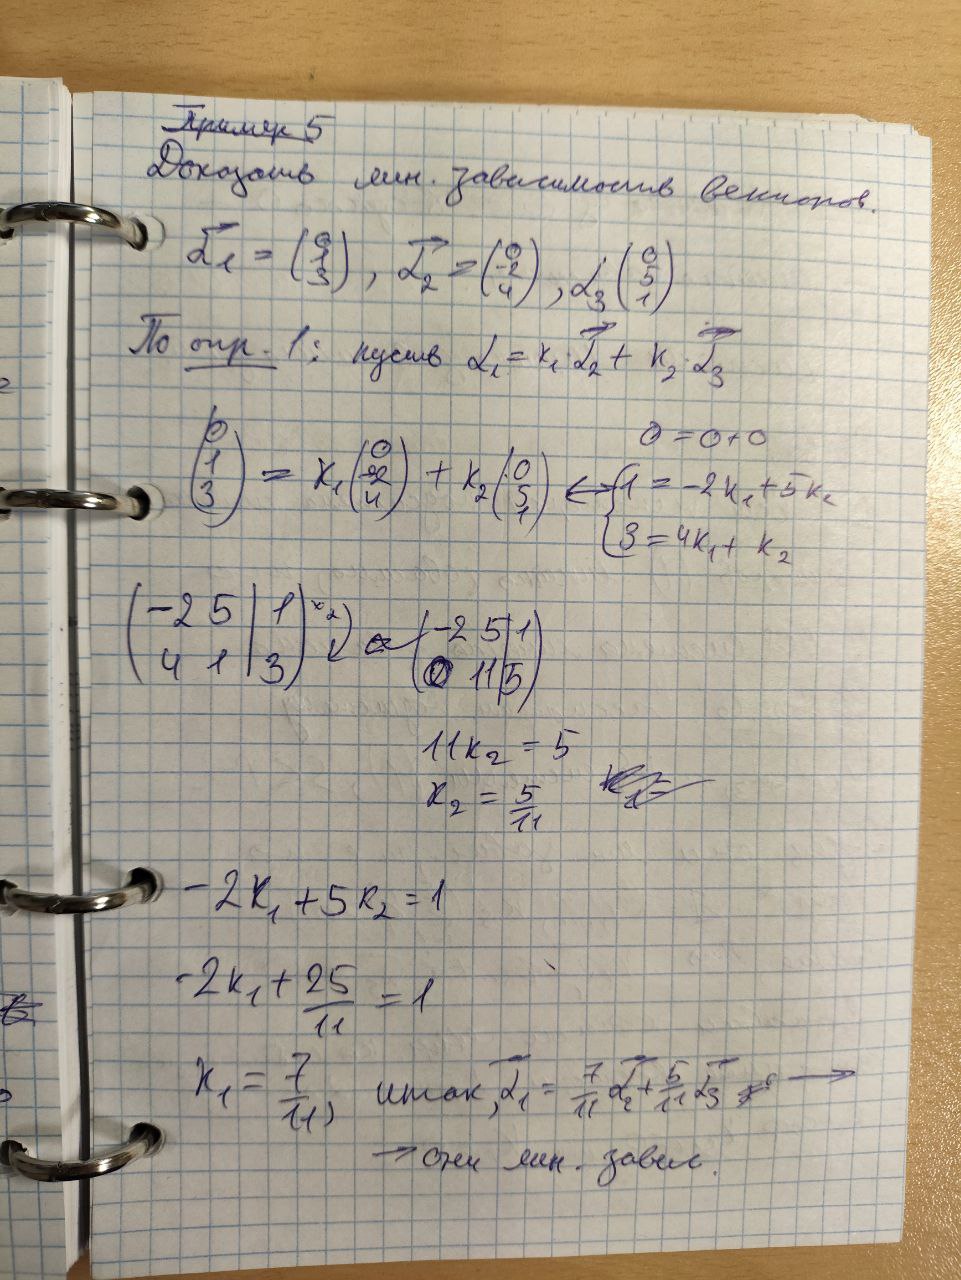 Пример 5
Доказать лин. зависимость векторов.
α₁ = (0 1 3), α₂ = (0 -2 4), α₃ (0 5 1)
По опр. 1: пусть α₁ = k₁·α₂ + k₂·α₃
0 = 0+0
(0 1 3) = k₁ (0 -2 4) + k₂ (0 5 1) ↔ { 1 = -2k₁ + 5k₂
3 = 4k₁ + k₂
(-2 5 | 1) ×2 ~ (-2 5 | 1)
(4 1 | 3) (0 11 | 5)
11k₂ = 5
k₂ = 5/11
-2k₁ + 5k₂ = 1
-2k₁ + 25/11 = 1
k₁ = 7/11, итак, α₁ = 7/11 α₂ + 5/11 α₃ →
→ они лин. завис.